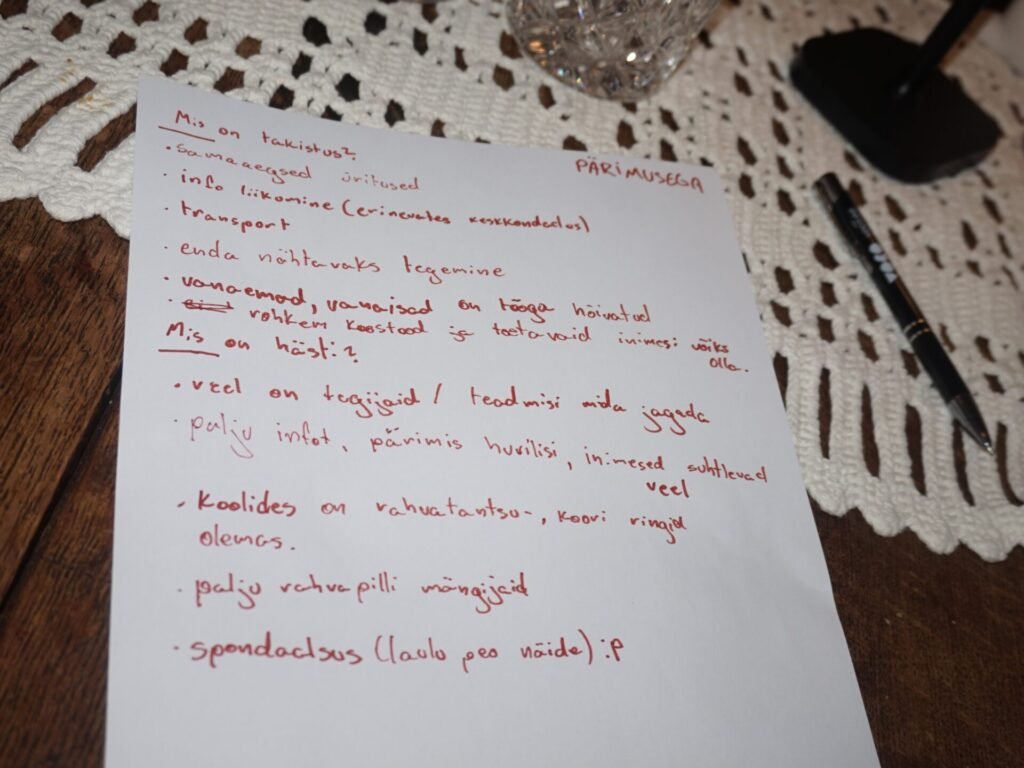 PÄRIMUSEGA
Mis on takistus?
• samaaegsed üritused
• info liikumine (erinevates keskkondades)
• transport
• enda nähtavaks tegemine
• vanaemad, vanaisad on tööga hõivatud
• rohkem koostööd ja toetavaid inimesi võiks
olla.
Mis on hästi?
• veel on tegijaid / teadmisi mida jagada
• palju infot, pärimis huvilisi, inimesed suhtlevad
veel
• koolides on rahvatantsu-, koori ringid
olemas.
• palju rahvapilli mängijaid
• spondaalsus (laulu peo näide) :P